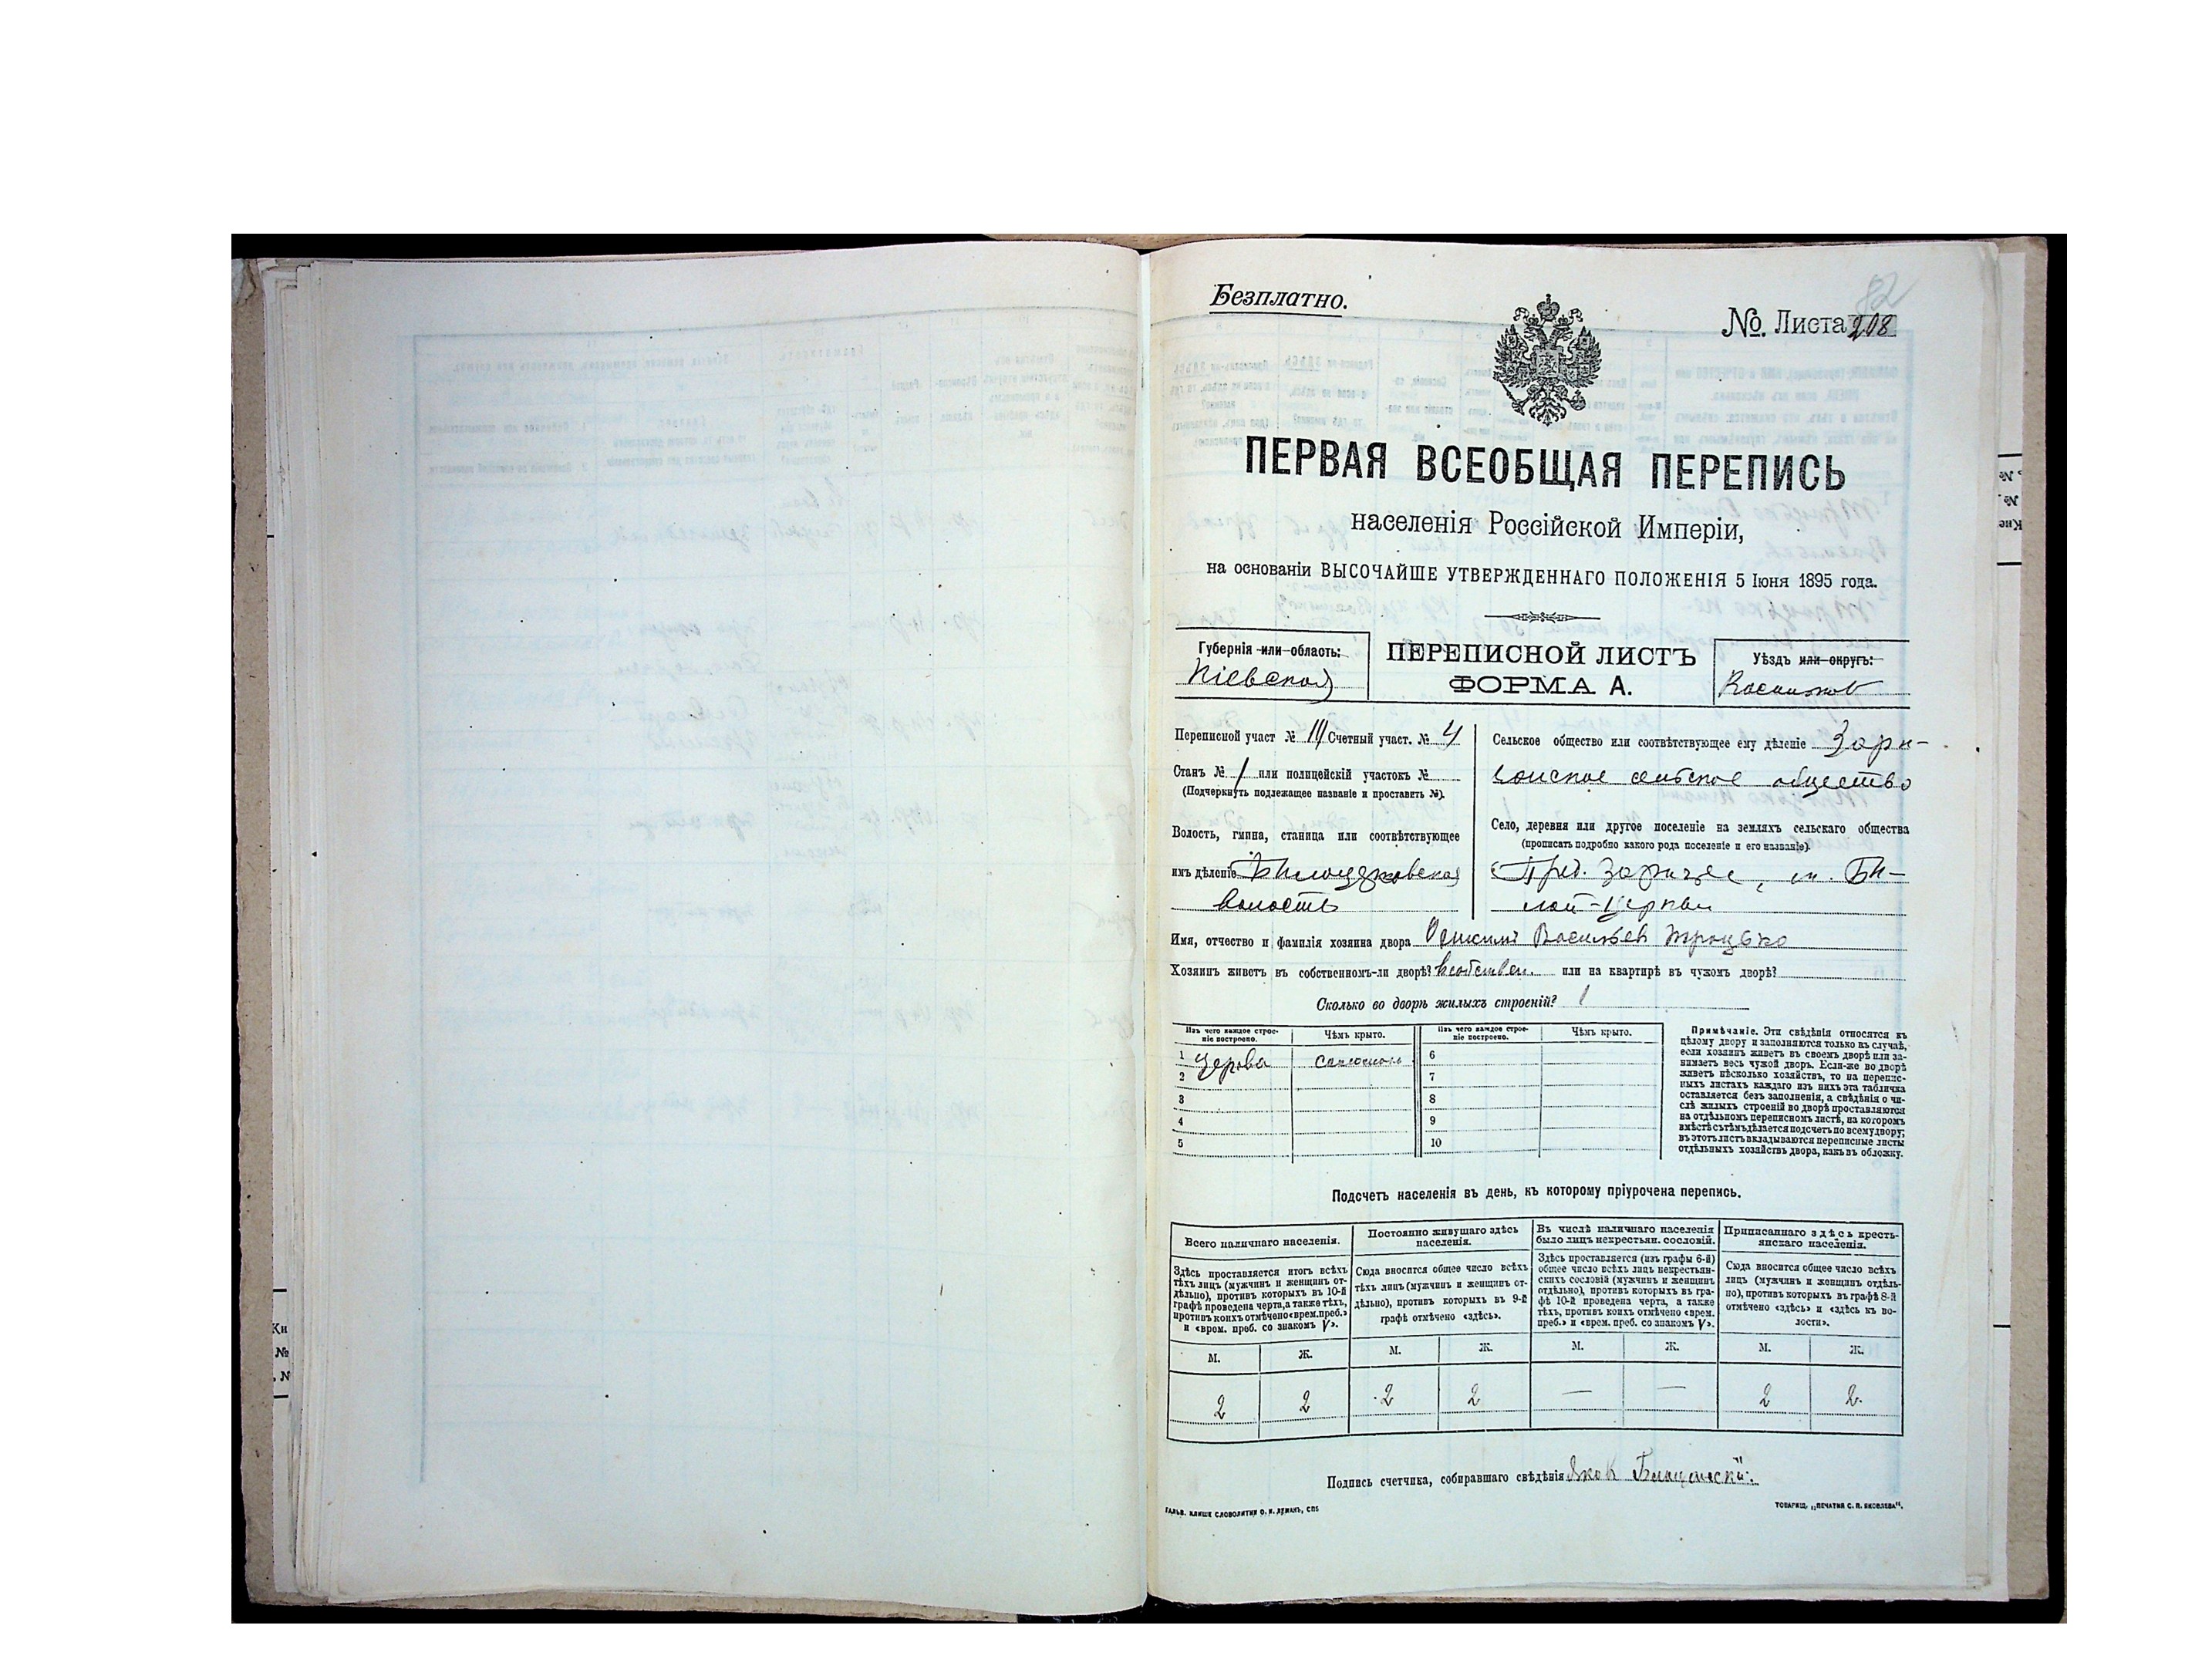 Безплатно.
№. Листа 208
82
ПЕРВАЯ ВСЕОБЩАЯ ПЕРЕПИСЬ
населенія Россійской Имперіи,
на основаніи ВЫСОЧАЙШЕ УТВЕРЖДЕННАГО ПОЛОЖЕНІЯ 5 Іюня 1895 года.
Губернія или область:
Кіевская
ПЕРЕПИСНОЙ ЛИСТЪ
ФОРМА А.
Уѣздъ или округъ:
Васильков
Переписной участ № III Счетный участ. № 4
Станъ № 1 или полицейскій участокъ №
(Подчеркнуть подлежащее названіе и проставить №).
Волость, гмина, станица или соотвѣтствующее
имъ дѣленіе Бѣлоцерковская
волость
Сельское общество или соотвѣтствующее ему дѣленіе Зари-
сельское общество
Село, деревня или другое поселеніе на земляхъ сельскаго общества
(прописать подробно какого рода поселеніе и его названіе).
Пред. Заричье, м. Бѣ-
лой-Церкви
Имя, отчество и фамилія хозяина двора Васильев Троцько
Хозяинъ живетъ въ собственномъ-ли дворѣ? в собствен. или на квартирѣ въ чужомъ дворѣ?
Сколько во дворѣ жилыхъ строеній? 1
Изъ чего каждое строе-
ніе построено.
Чѣмъ крыто.
Изъ чего каждое строе-
ніе построено.
Чѣмъ крыто.
1 дерева соломою 6
2 7
3 8
4 9
5 10
Примѣчаніе. Эти свѣдѣнія относятся къ
цѣлому двору и заполняются только въ случаѣ,
если хозяинъ живетъ въ своемъ дворѣ или за-
нимаетъ весь чужой дворъ. Если-же во дворѣ
живетъ нѣсколько хозяйствъ, то на перепис-
ныхъ листахъ каждаго изъ нихъ эта табличка
оставляется безъ заполненія, а свѣдѣнія о чи-
слѣ жилыхъ строеній во дворѣ проставляются
на отдѣльномъ переписномъ листѣ, на которомъ
вмѣстѣ съ тѣмъ дѣлается подсчетъ по всему двору;
въ этотъ листъ вкладываются переписные листы
отдѣльныхъ хозяйствъ двора, какъ въ обложку.
Подсчетъ населенія въ день, къ которому пріурочена перепись.
Всего наличнаго населенія.
Здѣсь проставляется итогъ всѣхъ
тѣхъ лицъ (мужчинъ и женщинъ от-
дѣльно), противъ которыхъ въ 10-й
графѣ проведена черта, а также тѣхъ,
противъ коихъ отмѣчено «врем. преб.»
и «врем. преб. со знакомъ V».
Постоянно живущаго здѣсь
населенія.
Сюда вносится общее число всѣхъ
тѣхъ лицъ (мужчинъ и женщинъ от-
дѣльно), противъ которыхъ въ 9-й
графѣ отмѣчено «здѣсь».
Въ числѣ наличнаго населенія
было лицъ некрестьян. сословій.
Здѣсь проставляется (изъ графы 6-й)
общее число всѣхъ лицъ некрестьян-
скихъ сословій (мужчинъ и женщинъ
отдѣльно), противъ которыхъ въ гра-
фѣ 10-й проведена черта, а также
тѣхъ, противъ коихъ отмѣчено «врем.
преб.» и «врем. преб. со знакомъ V».
Приписаннаго здѣсь кресть-
янскаго населенія.
Сюда вносится общее число всѣхъ
лицъ (мужчинъ и женщинъ отдѣль-
но), противъ которыхъ въ графѣ 8-й
отмѣчено «здѣсь» и «здѣсь къ во-
лости».
М. Ж. М. Ж. М. Ж. М. Ж.
2 2 2 2 — — 2 2
Подпись счетчика, собиравшаго свѣдѣнія Яков
ГАЛЬВ. КЛИШЕ СЛОВОЛИТНИ О. И. ЛЕМАНЪ, СПБ
ТОВАРИЩ. „ПЕЧАТНЯ С. П. ЯКОВЛЕВА“.